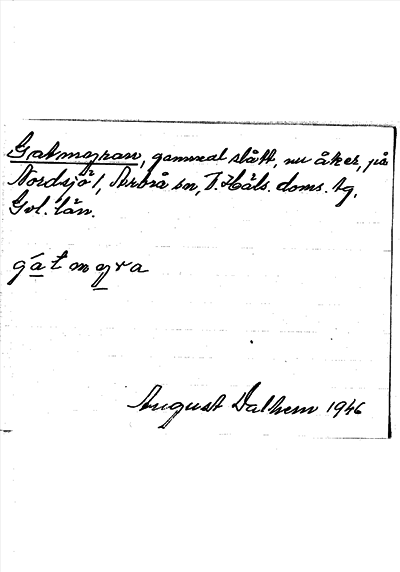 Gatmyran, gammal slått, nu åker, på
Nordsjö 1, Arbrå sn, V. Häls. doms. tg,
Gvl. län.
gátmyra
August Dalhem 1946